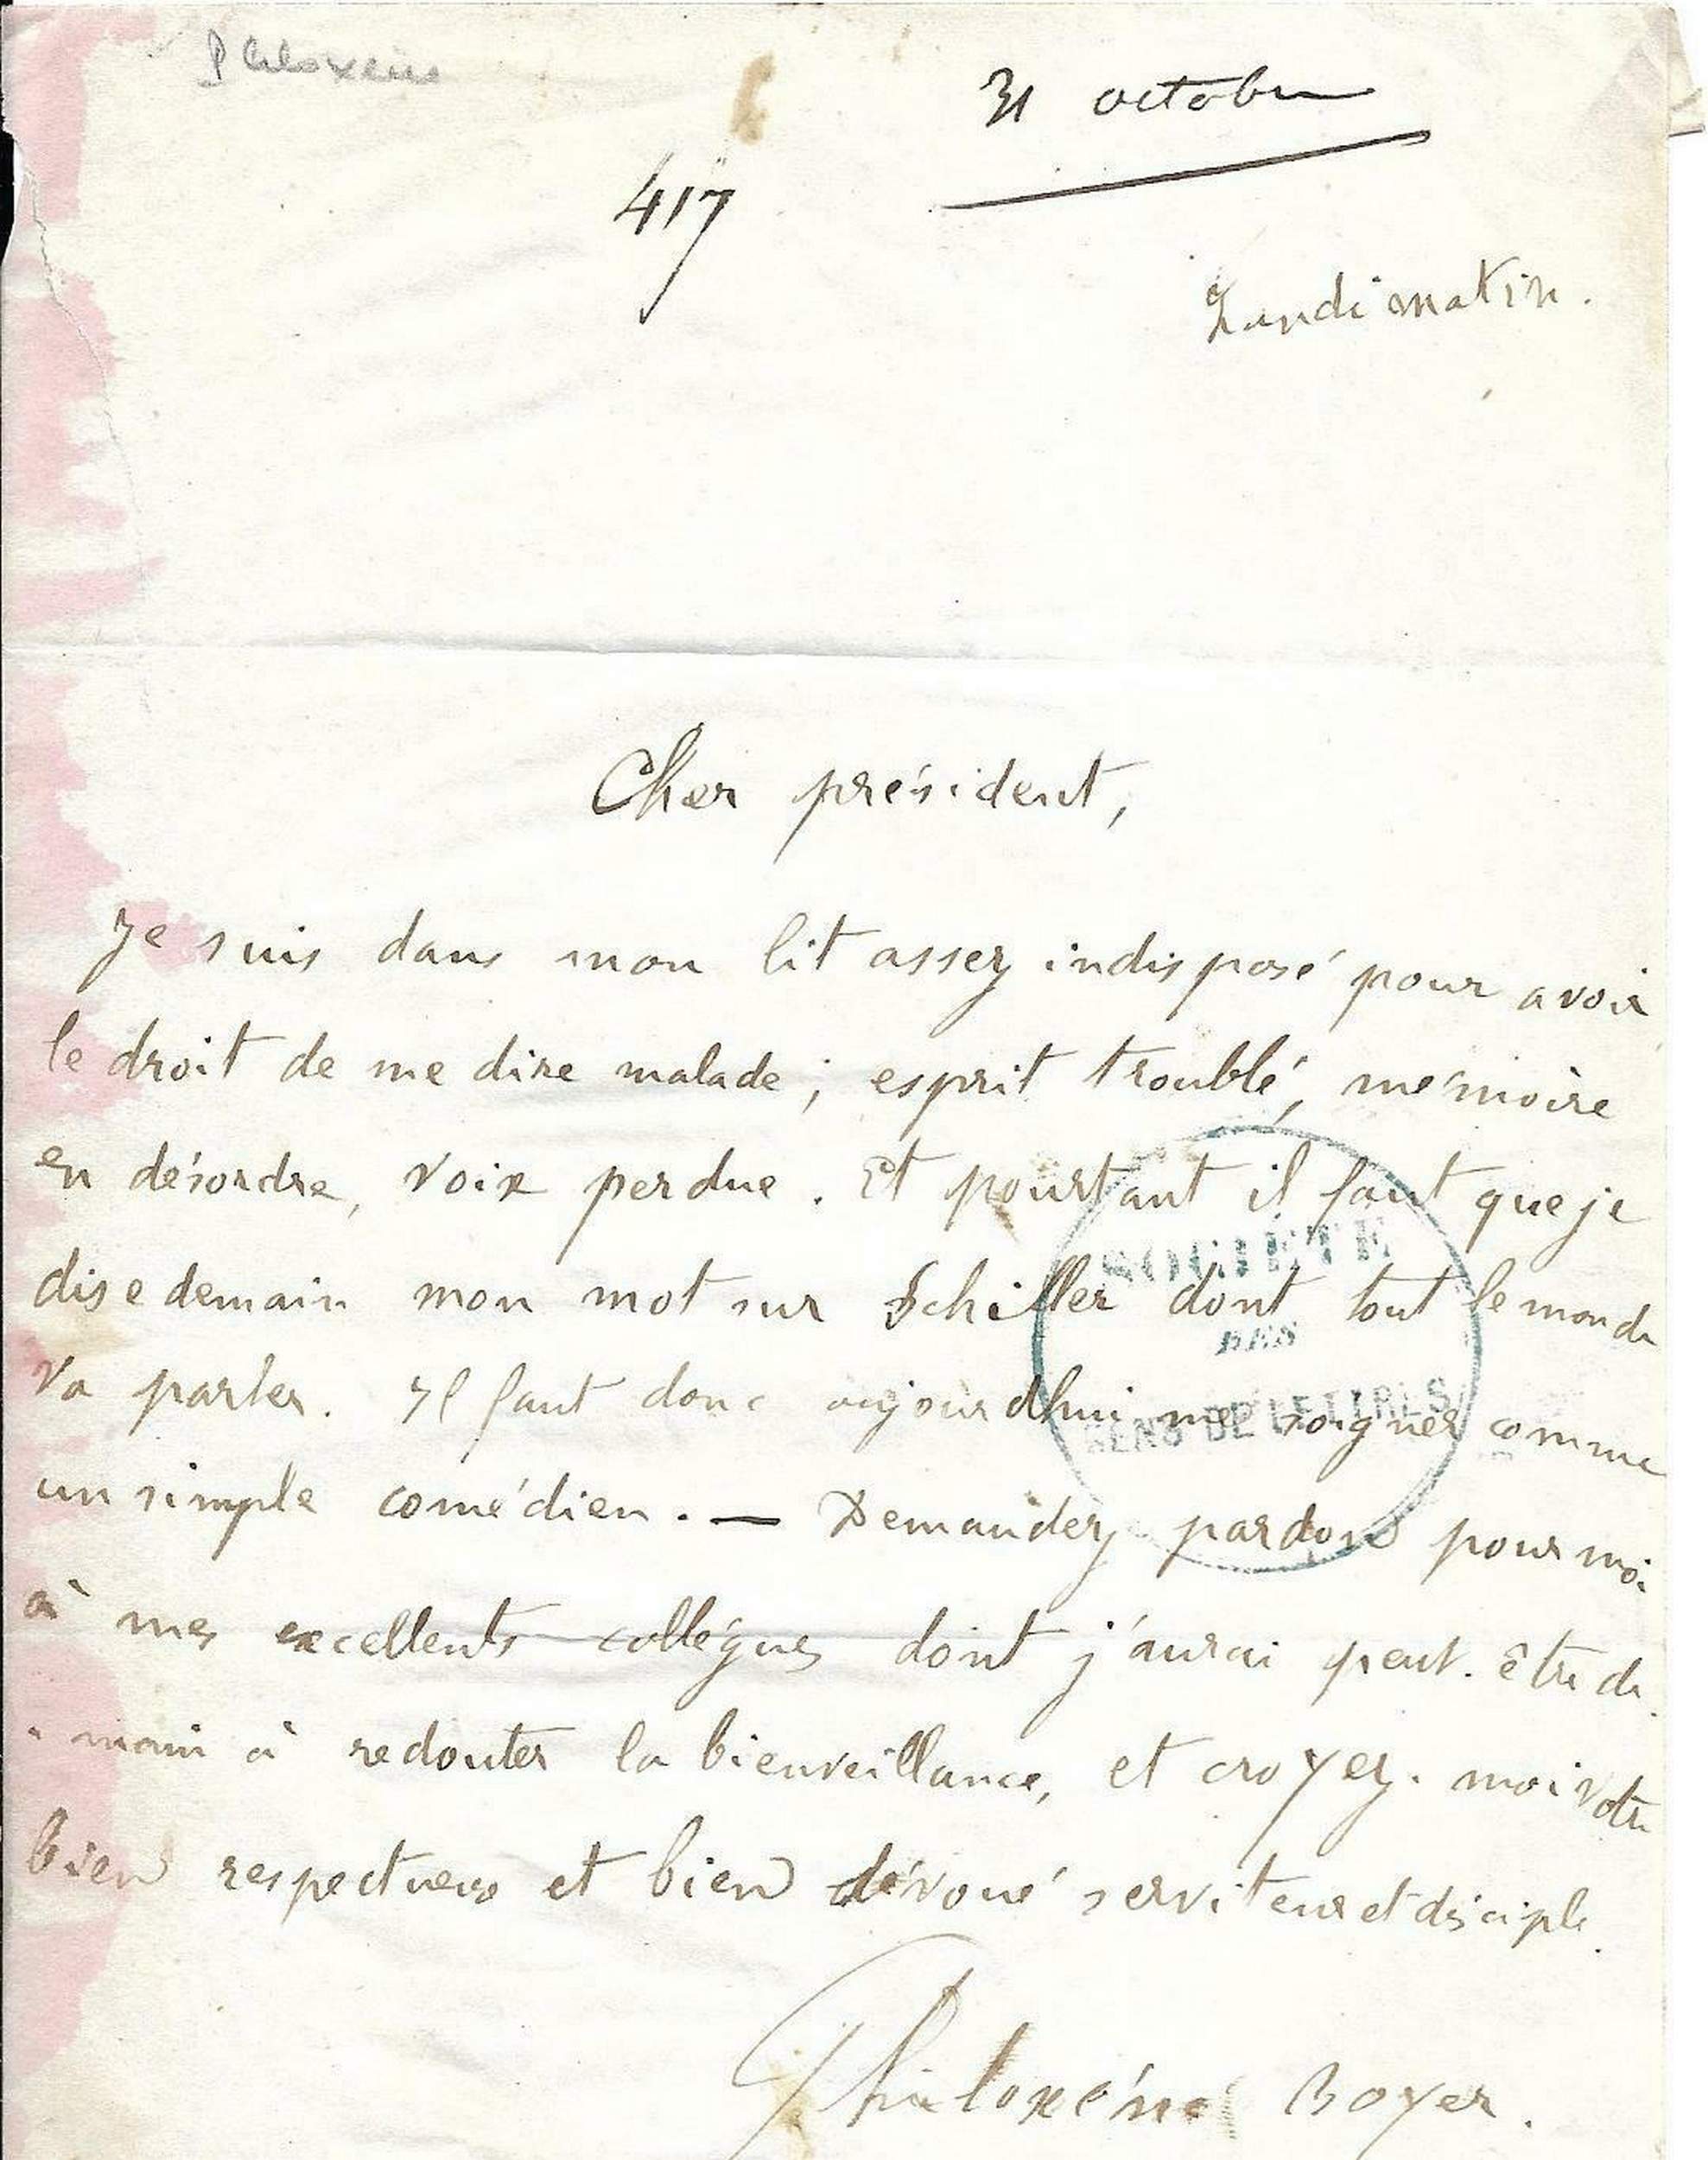 Philoxène
31 octobre
417
Lundi matin.
Cher président,
Je suis dans mon lit assez indisposé pour avoir
le droit de me dire malade ; esprit troublé, mémoire
en désordre, voix perdue. Et pourtant il faut que je
dise demain mon mot sur Schiller dont tout le monde
va parler. Il faut donc aujourd'hui me soigner comme
un simple comédien. — Demandez pardon pour moi
à mes excellents collégues dont j'aurai peut-être de-
-main à redouter la bienveillance, et croyez-moi votre
bien respectueux et bien dévoué serviteur et disciple.
Philoxéne Boyer.
SOCIÉTÉ
DES
GENS DE LETTRES